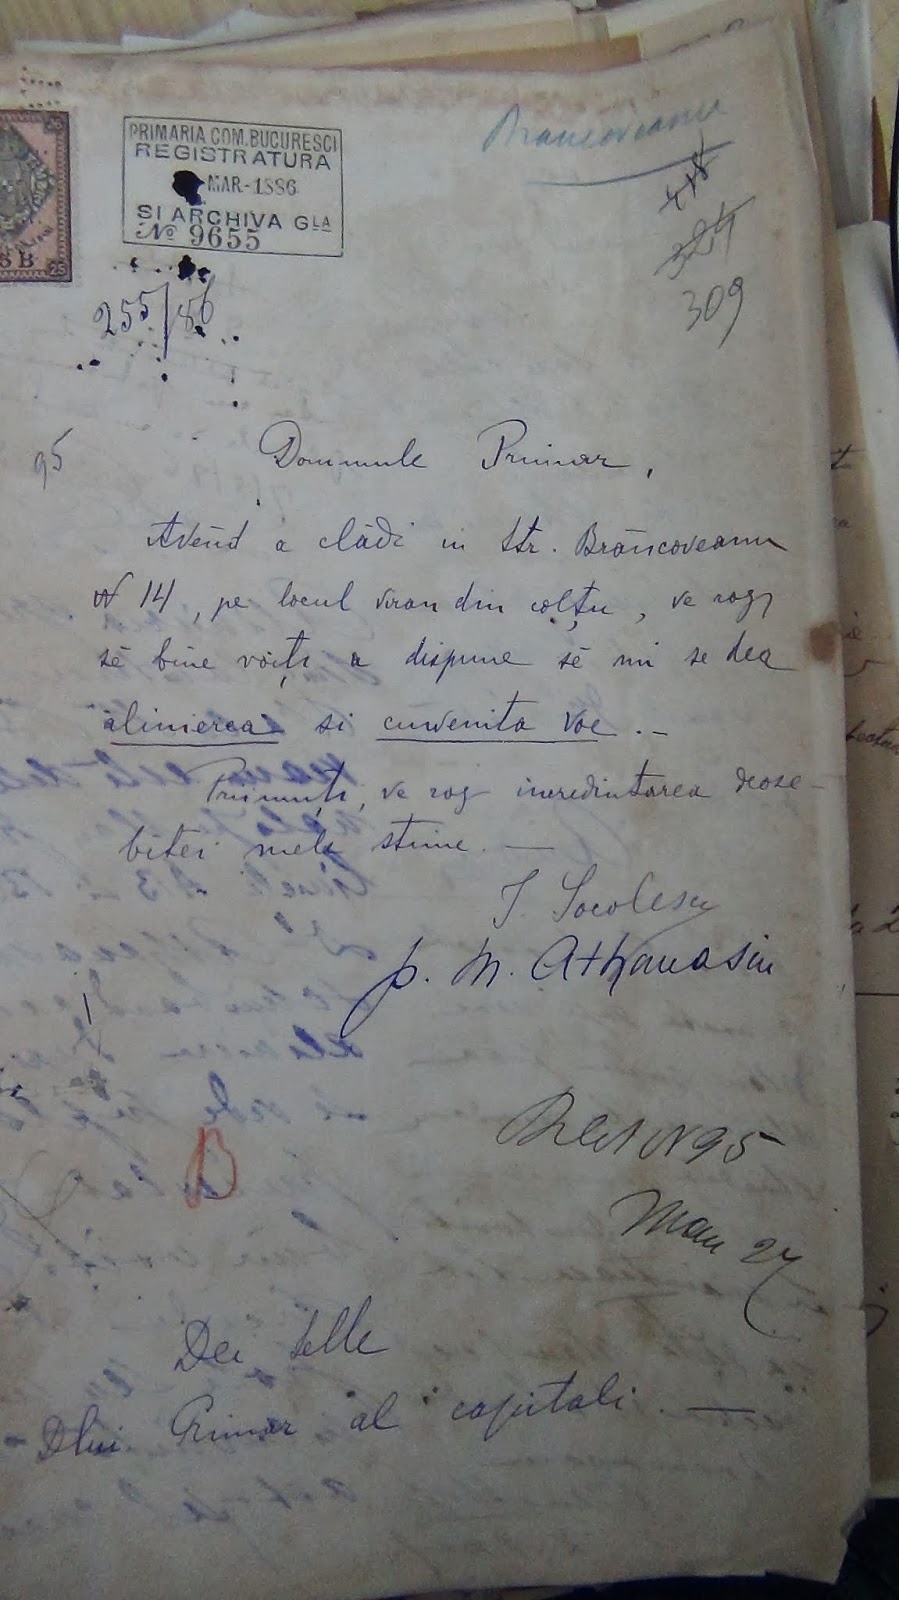 Brancoveanu
PRIMARIA COM. BUCURESCI
REGISTRATURA
MAR-1886
SI ARCHIVA GLA
№ 9655
25
S B
418
324
309
255/86
95
Domnule Primar,
Avênd a clădi in Str. Brâncoveanu
N 14, pe locul viran din colțu, ve rog
sĕ bine voiți a dispune sĕ mi se dea
alinierea si cuvenita voe . –
Priimiți, ve rog incredintarea deose-
bitei mele stime. —
I. Socolescu
p. M. Athanasiu
N 95
B
Mart 27
Dei selle
Dlui Primar al capitali. —